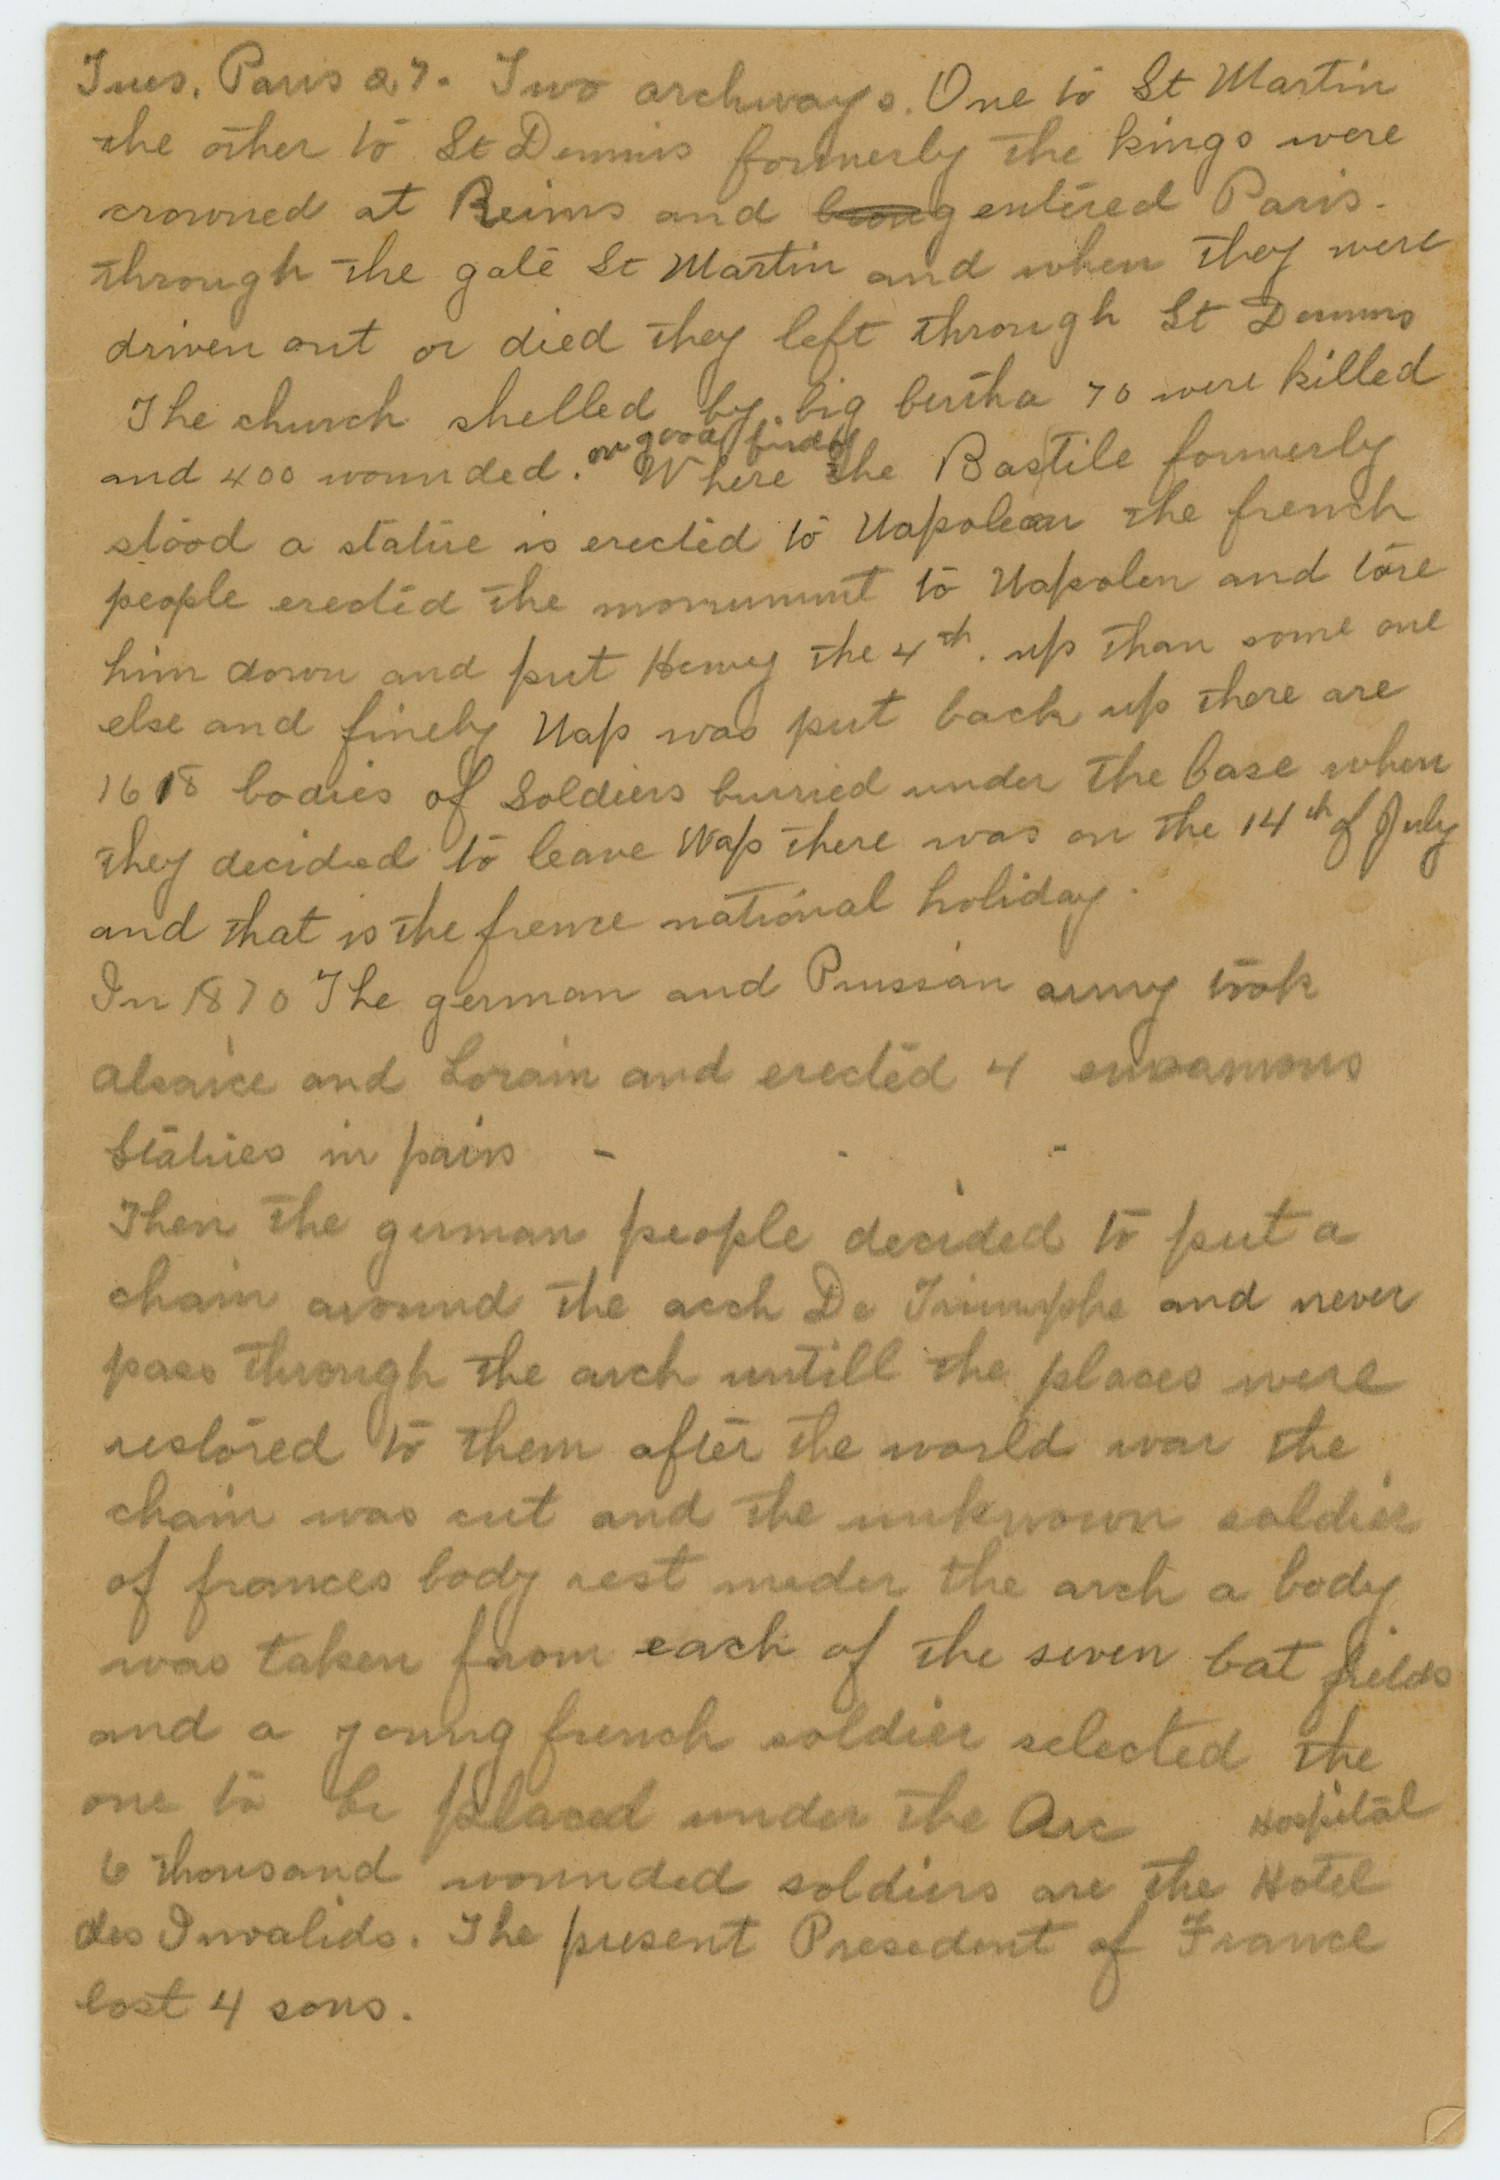 Tues. Paris 27. Two archways. One to St Martin
the other to St Dennis formerly the kings were
crowned at Reims and entered Paris.
through the gate St Martin and when they were
driven out or died they left through St Dennis
The church shelled by big bertha 70 were killed
on good friday
and 400 wounded. Where the Bastile formerly
stood a statue is erected to Napolean the french
people erected the monument to Napolen and tore
him down and put Henry the 4th. up than some one
else and finely Nap was put back up there are
1618 bodies of Soldiers burried under the base when
they decided to leave Nap there was on the 14th of July
and that is the frence national holiday.
In 1870 The german and Prussian army took
alsaice and Lorain and erected 4
Statues in paris - - -
Then the german people decided to put a
chain around the arch De Triumphe and never
pass through the arch untill the places were
restored to them after the world war the
chain was cut and the unknown soldier
of frances body rest under the arch a body
was taken from each of the seven bat fields
and a young french soldier selected the
one to be placed under the Arc
Hospital
6 thousand wounded soldiers are the Hotel
des Invalids. The present Presedent of France
lost 4 sons.